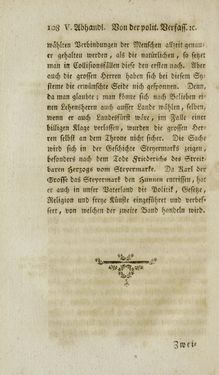 108 V. Abhandl. Von der polit. Verfaſſ. ꝛc.
wählten Verbindungen der Menſchen allzeit genau-
er gehalten werden, als die natürlichen, ſo ſetzet
man in Colliſionsfällen dieſe den erſten nach. Aber
auch die groſſen Herren haben ſich bei dieſem Sy-
ſteme die erwünſchte Seide nicht geſponnen. Denn,
da man glaubte: man könne ſich nach Belieben ei-
nen Lehensherrn auch auſſer Lande wählen, ſelben,
wenn er auch Landesfürſt wäre, im Falle einer
billigen Klage verlaſſen, wurden die groſſen Her-
ren ſelbſt an dem Throne nicht ſicher. Die Sache
wird ſich in der Geſchichte Steyermarks zeigen,
beſonders nach dem Tode Friederichs des Streit-
baren Herzogs vom Steyermark. Da Karl der
Groſſe das Steyermark den Hunnen entriſſen, hat
er auch in unſer Vaterland die Politik, Geſetze,
Religion und freye Künſte eingeführet und verbeſ-
ſert, von welchen der zweite Band handeln wird.
Zwei-